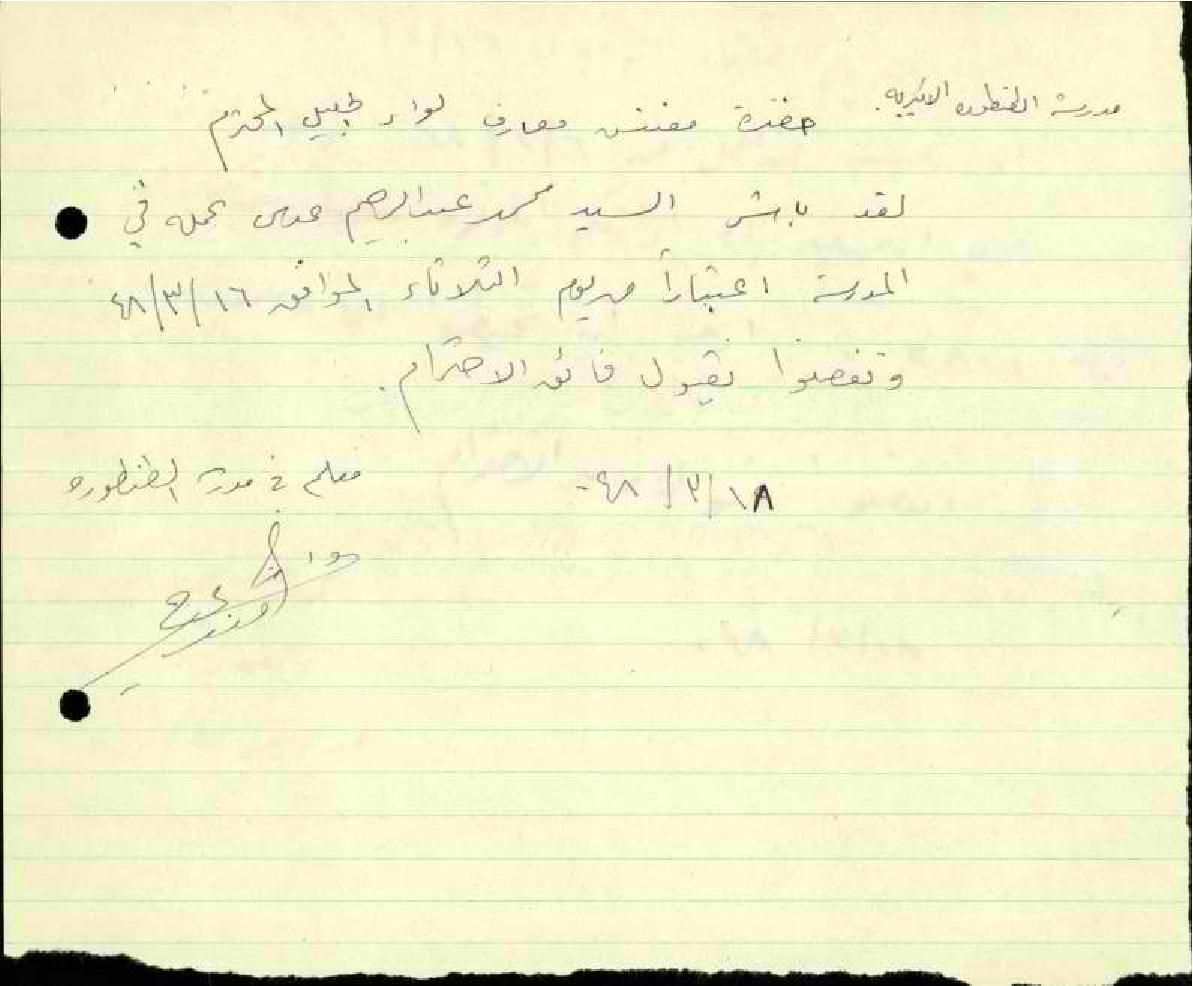 مدرسة الطنطوره الاميريه.
حضرة مفتش معارف لواء الجليل المحترم
لقد باشر السيد محمد عبد الرحيم عدس عمله في
المدرسة اعتباراً من يوم الثلاثاء الموافق ١٦/٣/٤٨
وتفضلوا بقبول فائق الاحترام.
١٨/٣/٤٨-
معلم في مدرسة الطنطوره